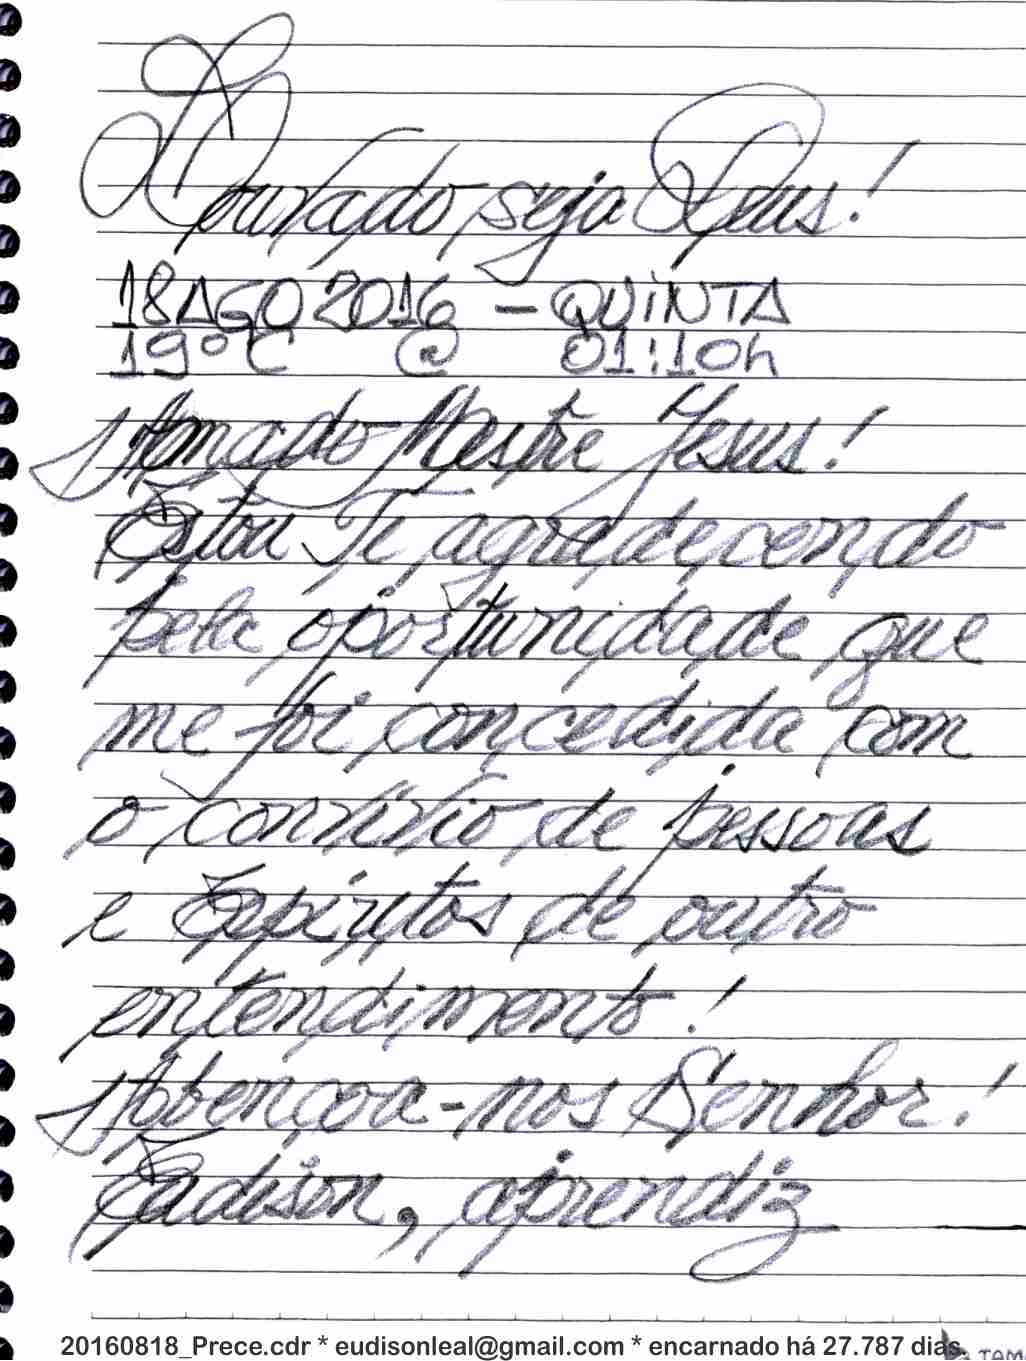 Louvado seja Deus!
18 AGO 2016 - QUINTA
19°C @ 01:10h
Amado Mestre Jesus!
Estou Te agradecendo
pela oportunidade que
me foi concedida com
o convívio de pessoas
e Espíritos de outro
entendimento!
Abençoa-nos Senhor!
Eudison, aprendiz
20160818_Prece.cdr * eudisonleal@gmail.com * encarnado há 27.787 dias.